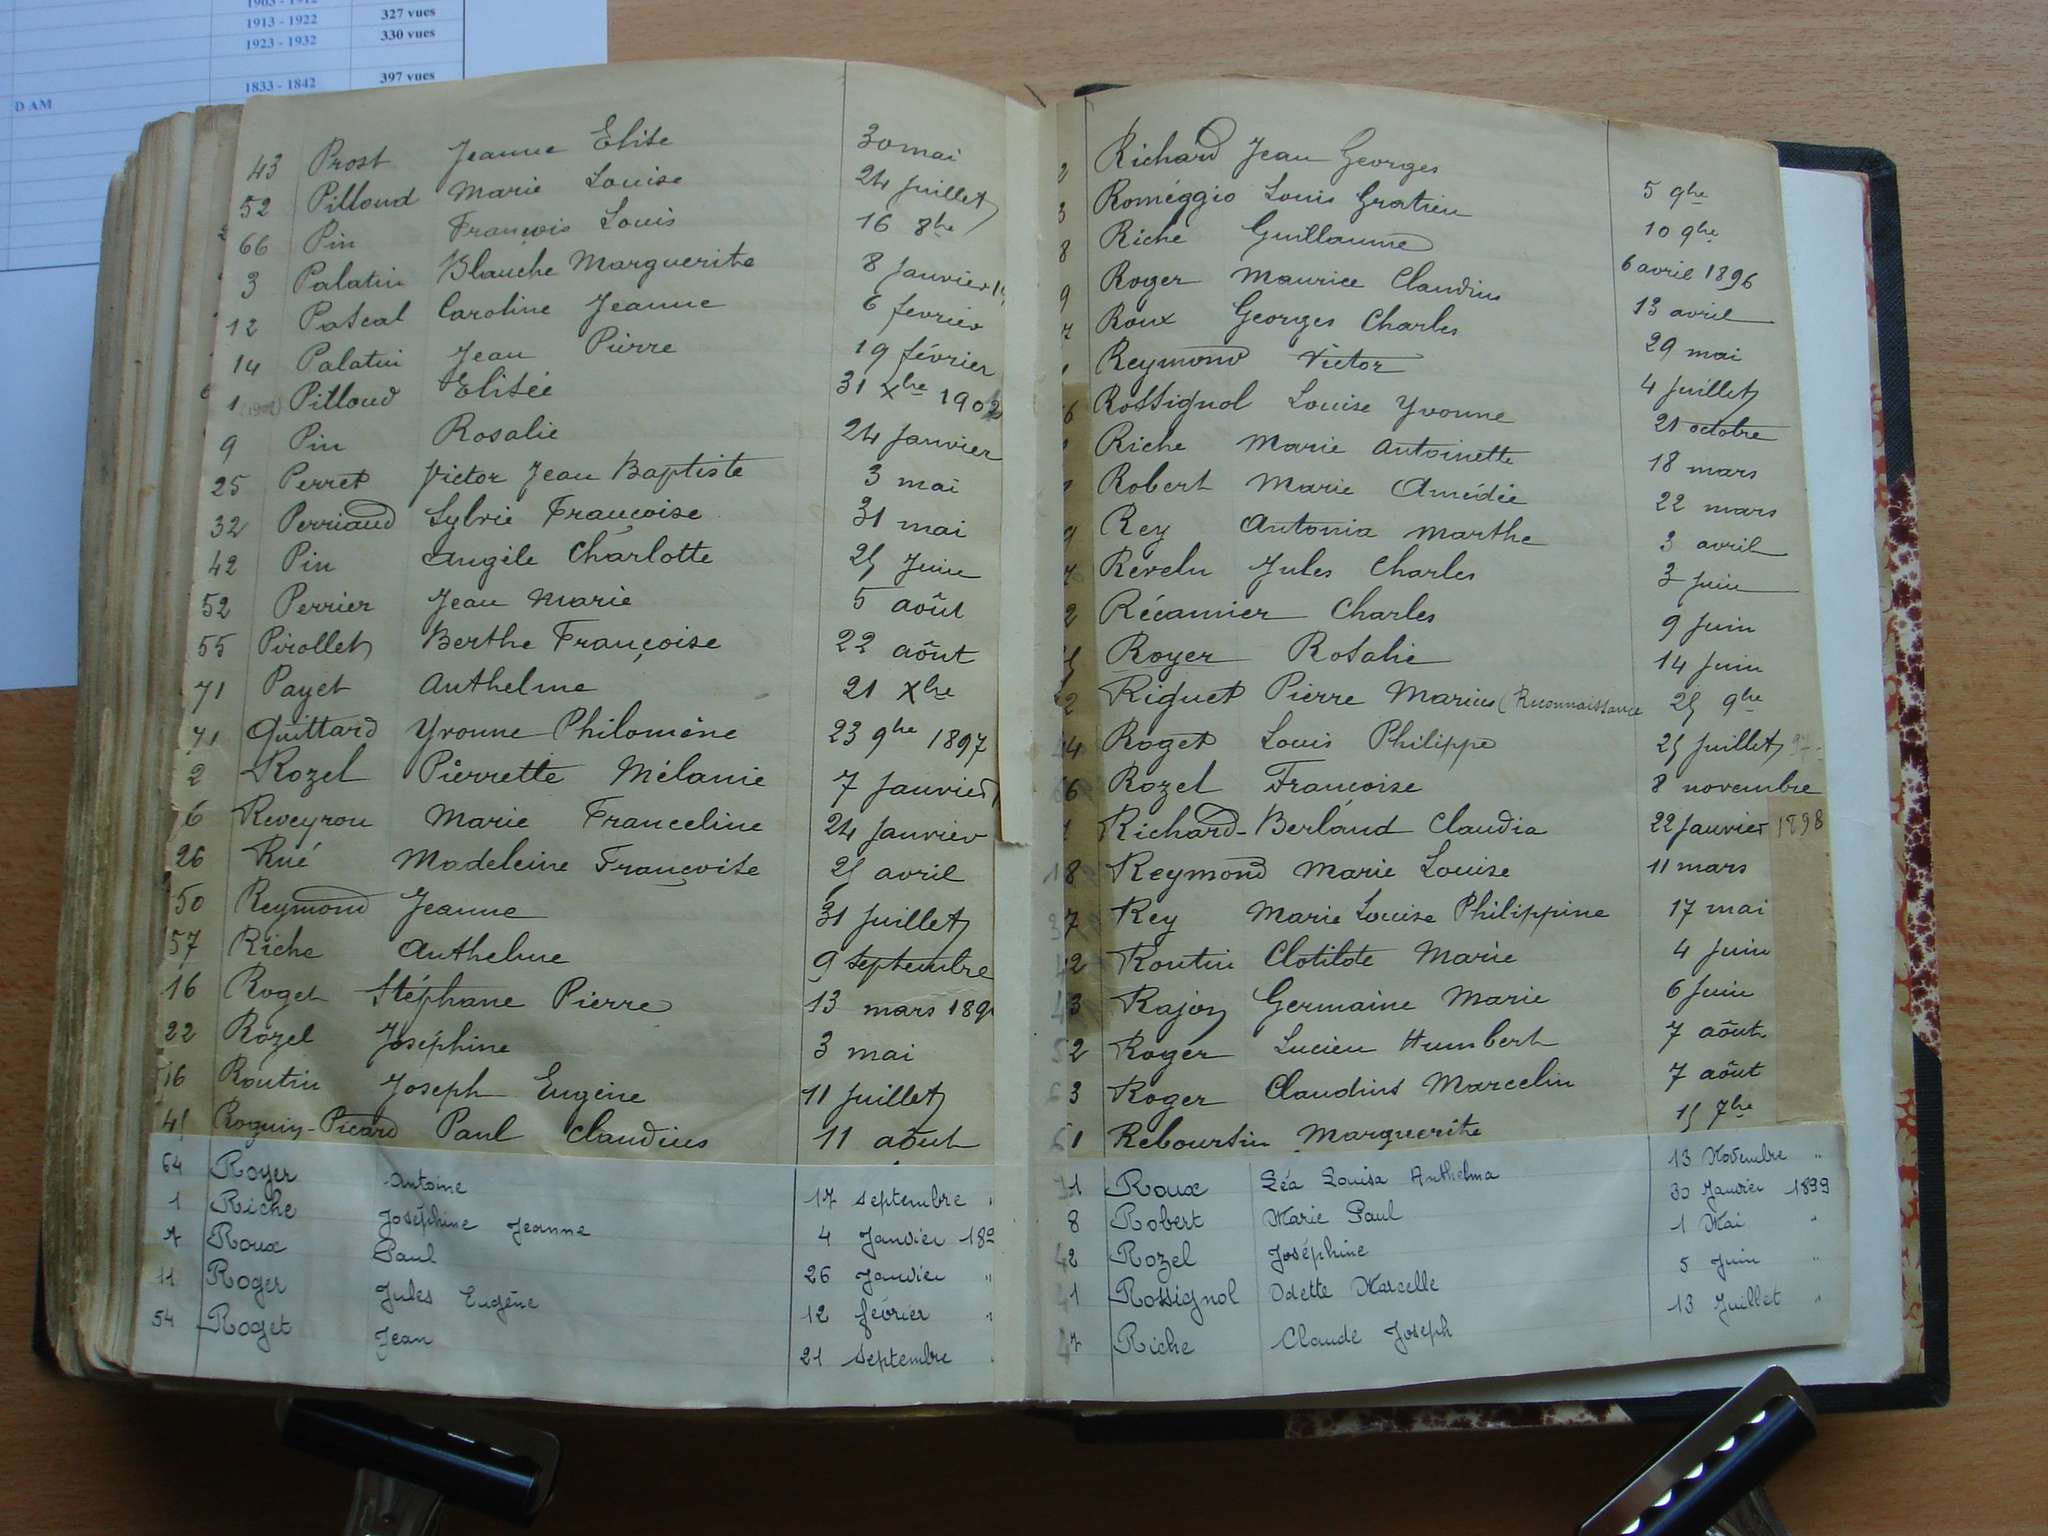 1903 - 1912
1913 - 1922 327 vues
1923 - 1932 330 vues
1833 - 1842 397 vues
D AM
43 Prost Jeanne Elise 30 mai
52 Pilloud Marie Louise 24 juillet
66 Pin François Louis 16 8bre
3 Palatin Blanche Marguerite 8 janvier
12 Pascal Caroline Jeanne 6 février
14 Palatin Jean Pierre 19 février
1 Pilloud Elisée 31 Xbre 1902
9 Pin Rosalie 24 janvier
25 Perret Victor Jean Baptiste 3 mai
32 Perriaud Sylvie Françoise 31 mai
42 Pin Angèle Charlotte 25 juin
52 Perrier Jean Marie 5 août
55 Pirollet Berthe Françoise 22 août
71 Payet Anthelme 21 Xbre
71 Quittard Yvonne Philomène 23 9bre 1897
2 Rozel Pierrette Mélanie 7 janvier
6 Reveyron Marie Franceline 24 janvier
26 Rué Madeleine Françoise 25 avril
50 Reymond Jeanne 31 juillet
57 Riche Anthelme 9 septembre
16 Roget Stéphane Pierre 13 mars 189
22 Rozel Joséphine 3 mai
16 Routin Joseph Eugène 11 juillet
45 Roguin-Picard Paul Claudius 11 août
64 Royer Antoine 17 septembre "
1 Riche Joséphine Jeanne 4 Janvier 189
7 Roux Paul 26 Janvier "
11 Roger Jules Eugène 12 février "
54 Roget Jean 21 septembre "
2 Richard Jean Georges
3 Roméggio Louis Gratien 5 9bre
8 Riche Guillaume 10 9bre
9 Roger Maurice Claudius 6 avril 1896
7 Roux Georges Charles 13 avril
Reymond Victor 29 mai
6 Rossignol Louise Yvonne 4 juillet
Riche Marie Antoinette 21 octobre
Robert Marie Amédée 18 mars
9 Rey Antonia Marthe 22 mars
7 Revelu Jules Charles 3 avril
2 Récamier Charles 3 juin
5 Royer Rosalie 9 juin
2 Riguet Pierre Marius (Reconnaissance 14 juin
44 Roget Louis Philippe 25 9bre
66 Rozel Françoise 25 juillet 97
1 Richard-Berland Claudia 8 novembre
18 Reymond Marie Louise 22 janvier 1898
37 Rey Marie Louise Philippine 11 mars
42 Routin Clotilde Marie 17 mai
43 Rajon Germaine Marie 4 juin
52 Roger Lucien Humbert 6 juin
63 Roger Claudius Marcelin 7 août
61 Reboursin Marguerite 7 août
15 7bre
71 Roux Léa Louisa Anthelma 13 Novembre "
8 Robert Marie Paul 30 Janvier 1899
42 Rozel Joséphine 1 Mai "
41 Rossignol Odette Marcelle 5 Juin "
47 Riche Claude Joseph 13 Juillet "